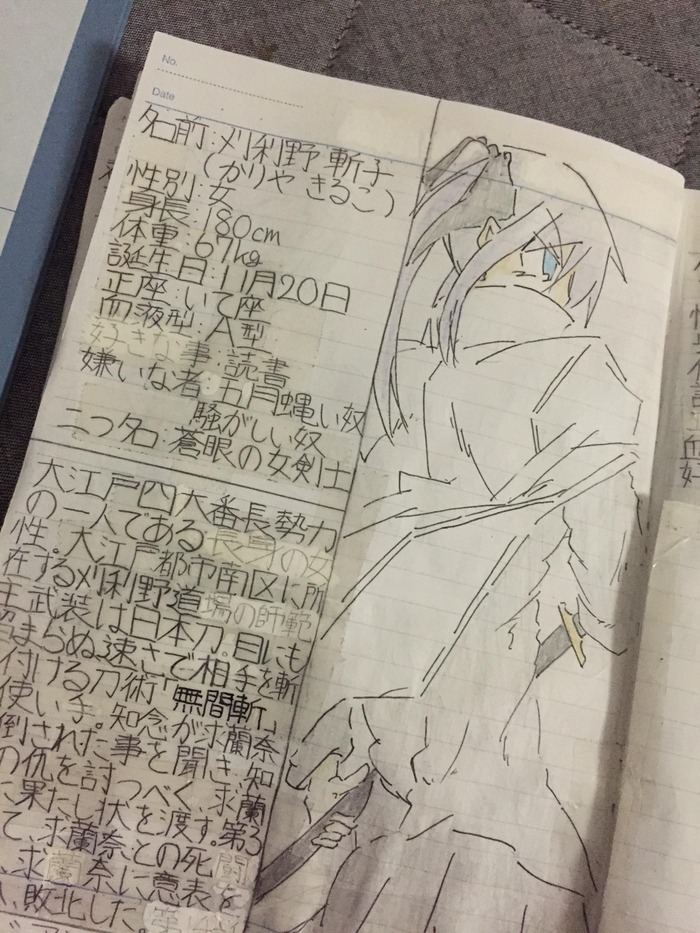 No.
Date
名前:刈利野 斬子
(かりや きるこ)
性別:女
身長:180cm
体重:67kg
誕生日:11月20日
正座:いて座
血液型:A型
好きな事:読書
嫌いな者:五月蝿い奴
騒がしい奴
二つ名:蒼眼の女剣士
大江戸四大番長勢力
の一人である長身の女
性。大江戸都市南区に所
在する刈利野道場の師範
主武装は日本刀。目にも
留まらぬ速さで相手を斬
付ける刀術「無間斬」
使い手。知念が求蘭奈
倒された事を聞き、知
の仇を討つべく、求蘭
に果たし状を渡す。第3
て、求蘭奈との死闘を
、求蘭奈に意表を
、敗北した。